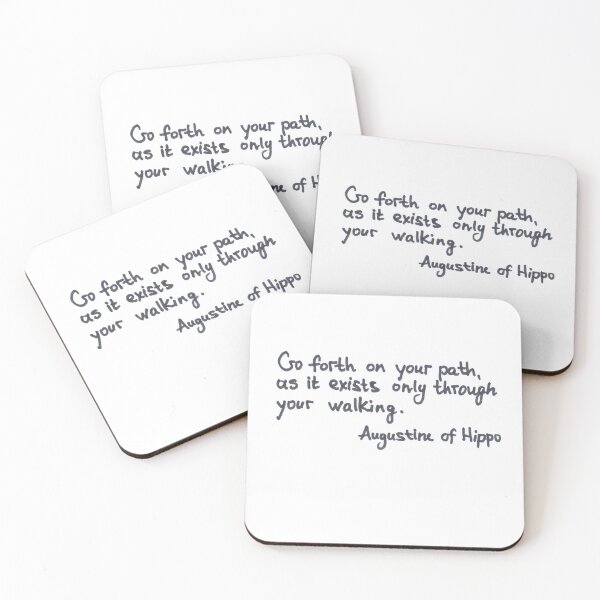 Go forth on your path,
as it exists only through
your walking.
Augustine of Hippo
Go forth on your path,
as it exists only through
your walking.
Augustine of Hippo
Go forth on your path,
as it exists only through
your walking.
Augustine of Hippo
Go forth on your path,
as it exists only through
your walking.
Augustine of Hippo